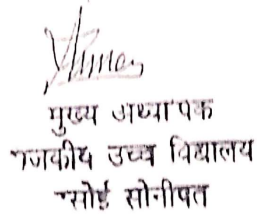 मुख्य अध्यापक
राजकीय उच्च विद्यालय
सोई सोनीपत